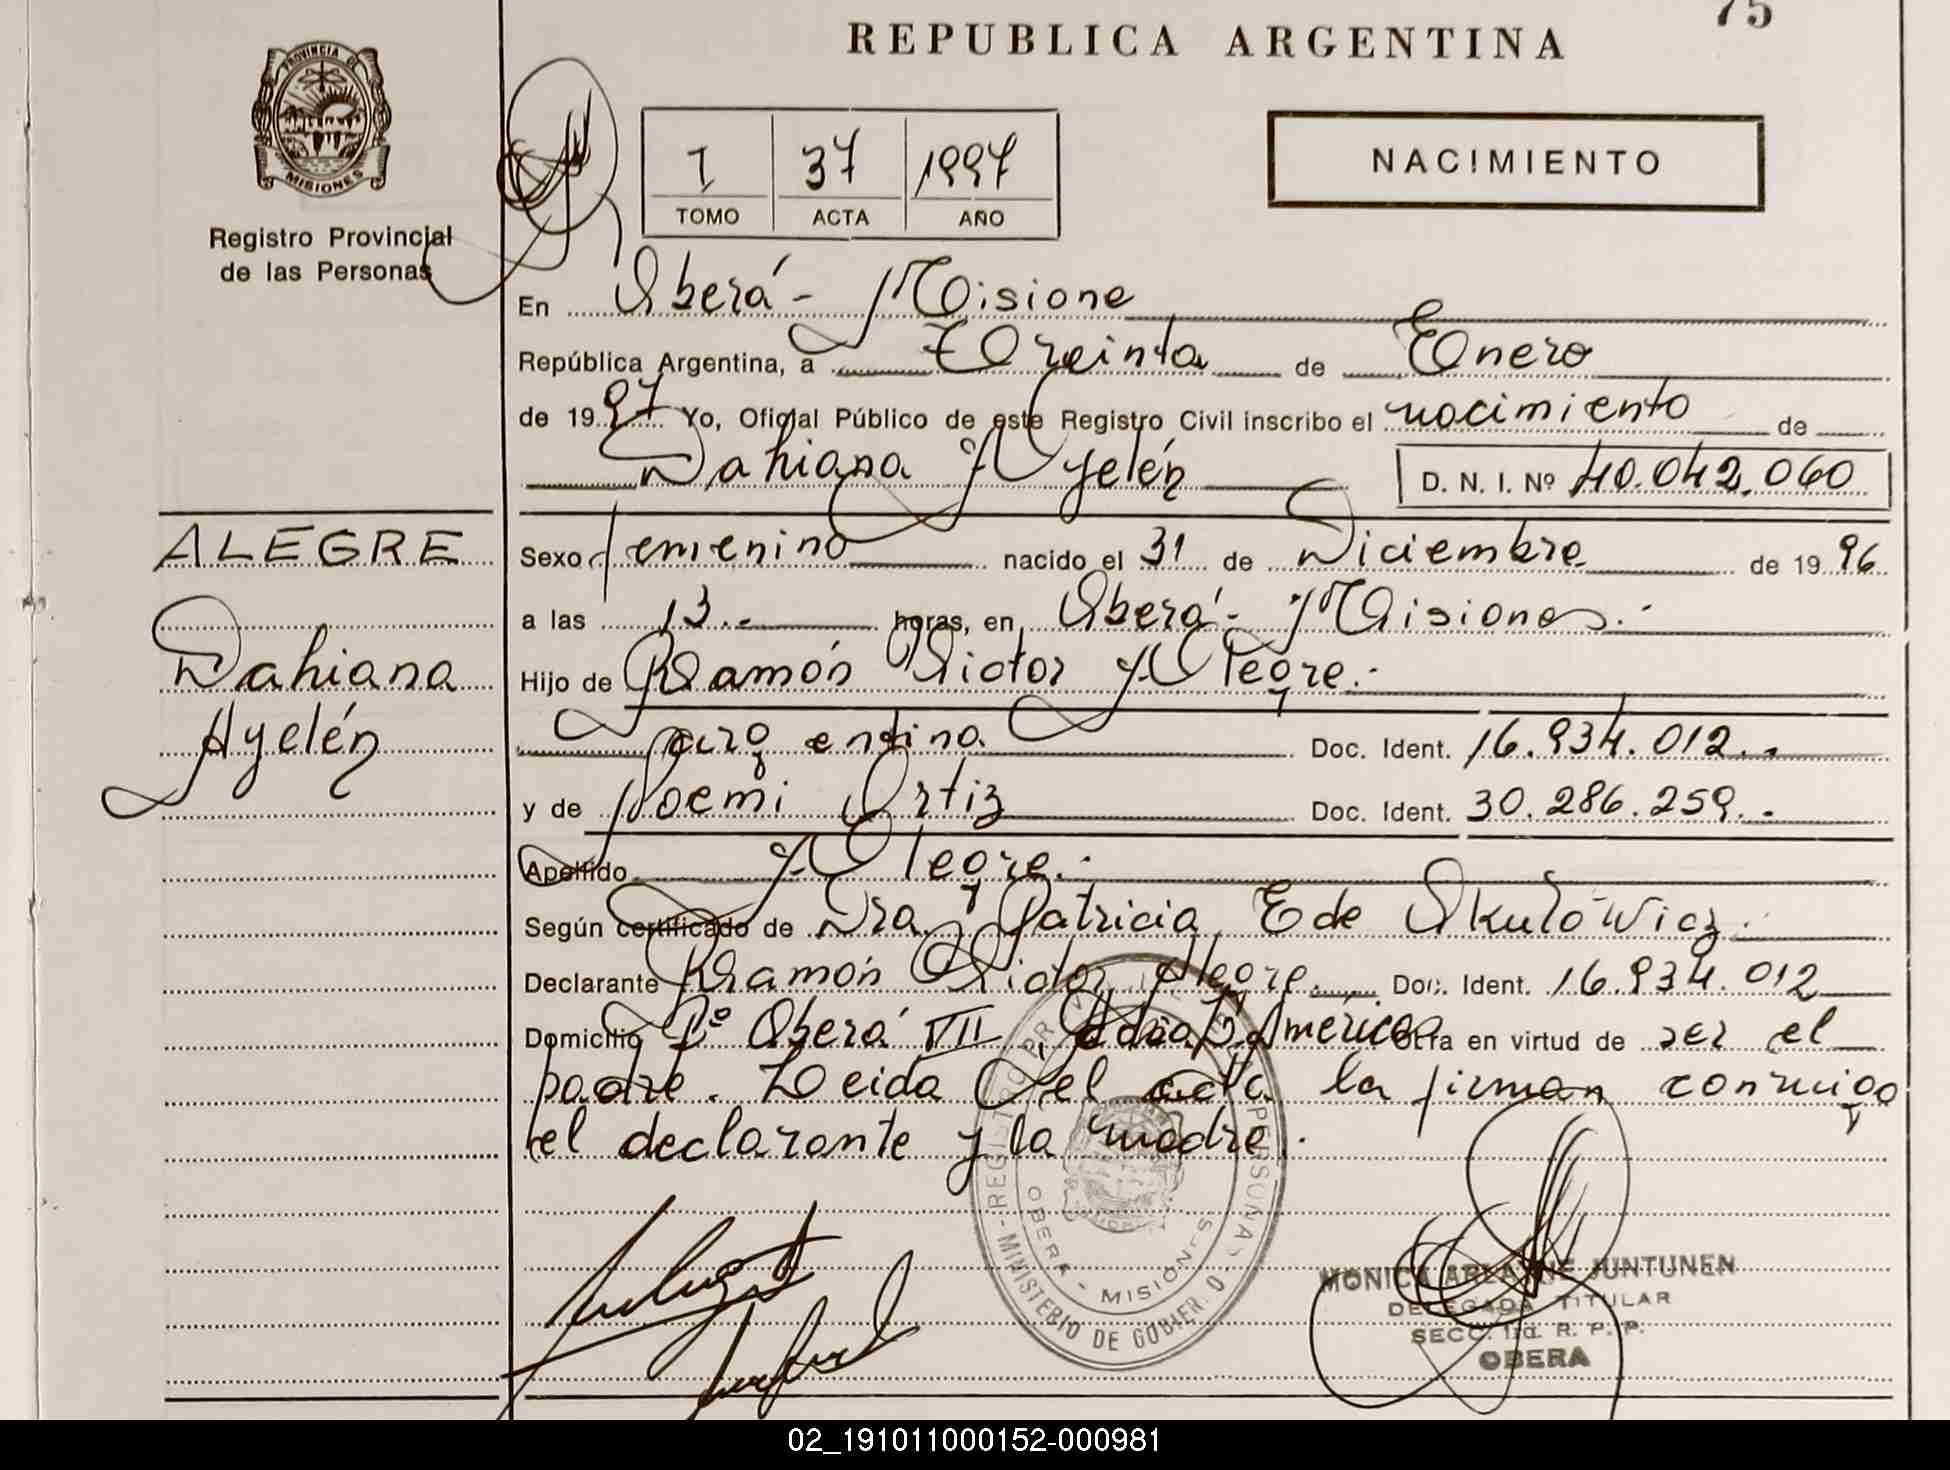 75
REPUBLICA ARGENTINA
PROVINCIA DE
MISIONES
Registro Provincial
de las Personas
1 37 1997
TOMO ACTA AÑO
NAC!MIENTO
En Oberá - Misione
República Argentina, a Treinta de Enero
de 19 97 Yo, Oficial Público de este Registro Civil inscribo el nacimiento de
Dahiana Ayelén D. N. I. Nº 40.042.060
ALEGRE
Dahiana
Ayelén
Sexo femenino nacido el 31 de Diciembre de 19 96
a las 13.- horas, en Oberá - Misiones.-
Hijo de Ramón Victor Alegre.-
argentina Doc. Ident. 16.934.012.-
y de Noemi Ortiz Doc. Ident. 30.286.259.-
Apellido Alegre.-
Según certificado de Dra. Patricia E de Skulowicz.-
Declarante Ramón Victor Alegre. Doc. Ident. 16.934.012
Domicilio Bº Oberá VII, América en virtud de ser el
padre. Leida el acta la firman conmigo
el declarante y la madre.
MINISTERIO DE GOBIER
OBERA - MISIONES
MONICA JUNTUNEN
DELEGADA TITULAR
SECC. 1ra. R. P. P.
OBERA
02_191011000152-000981